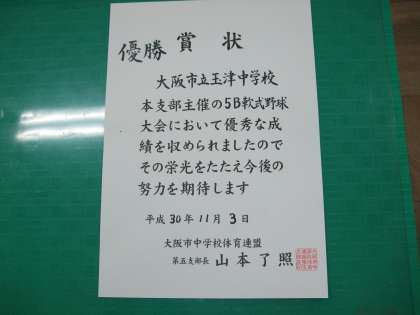 優勝 賞状
大阪市立玉津中学校
本支部主催の5B軟式野球
大会において優秀な成
績を収められましたので
その栄光をたたえ今後の
努力を期待します
平成30年11月3日
大阪市中学校体育連盟
第五支部長 山本了照